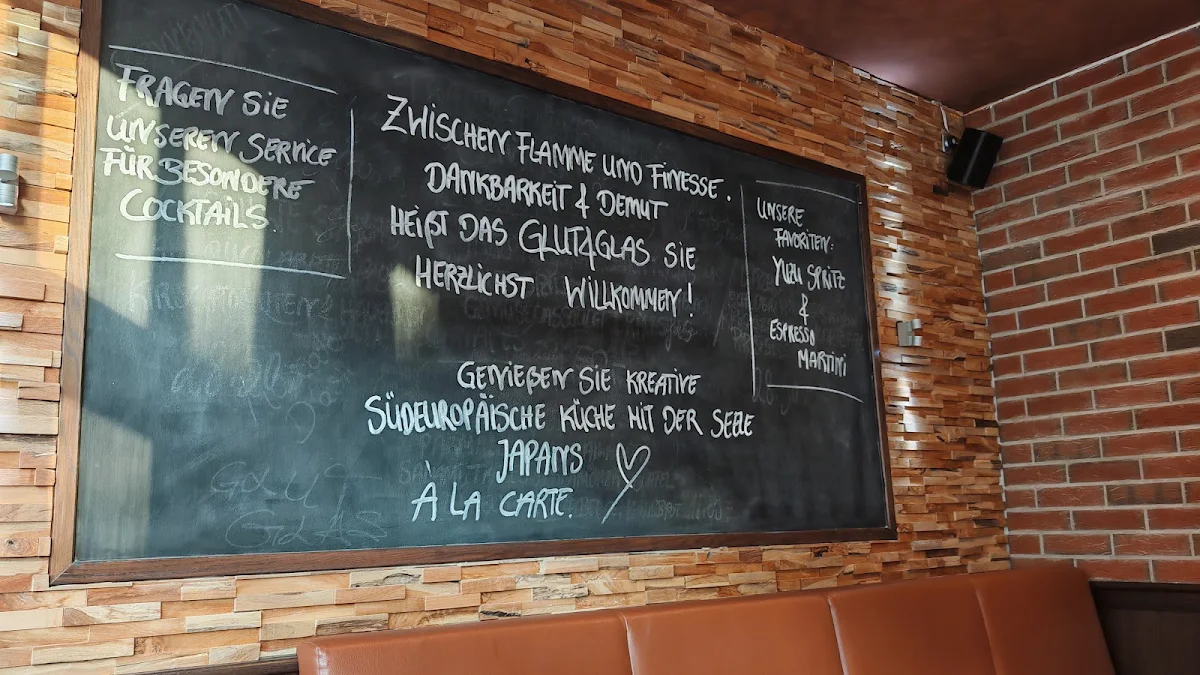 FRAGEN SIE
UNSEREN SERVICE
FÜR BESONDERE
COCKTAILS.
ZWISCHEN FLAMME UND FINESSE.
DANKBARKEIT & DEMUT
HEIßT DAS GLUT&GLAS SIE
HERZLICHST WILLKOMMEN!
GENIEßEN SIE KREATIVE
SÜDEUROPÄISCHE KÜCHE MIT DER SEELE
JAPANS
À LA CARTE.
UNSERE
FAVORITEN:
YUZU SPRITZ
&
ESPRESSO
MARTINI
GLUT
GLAS